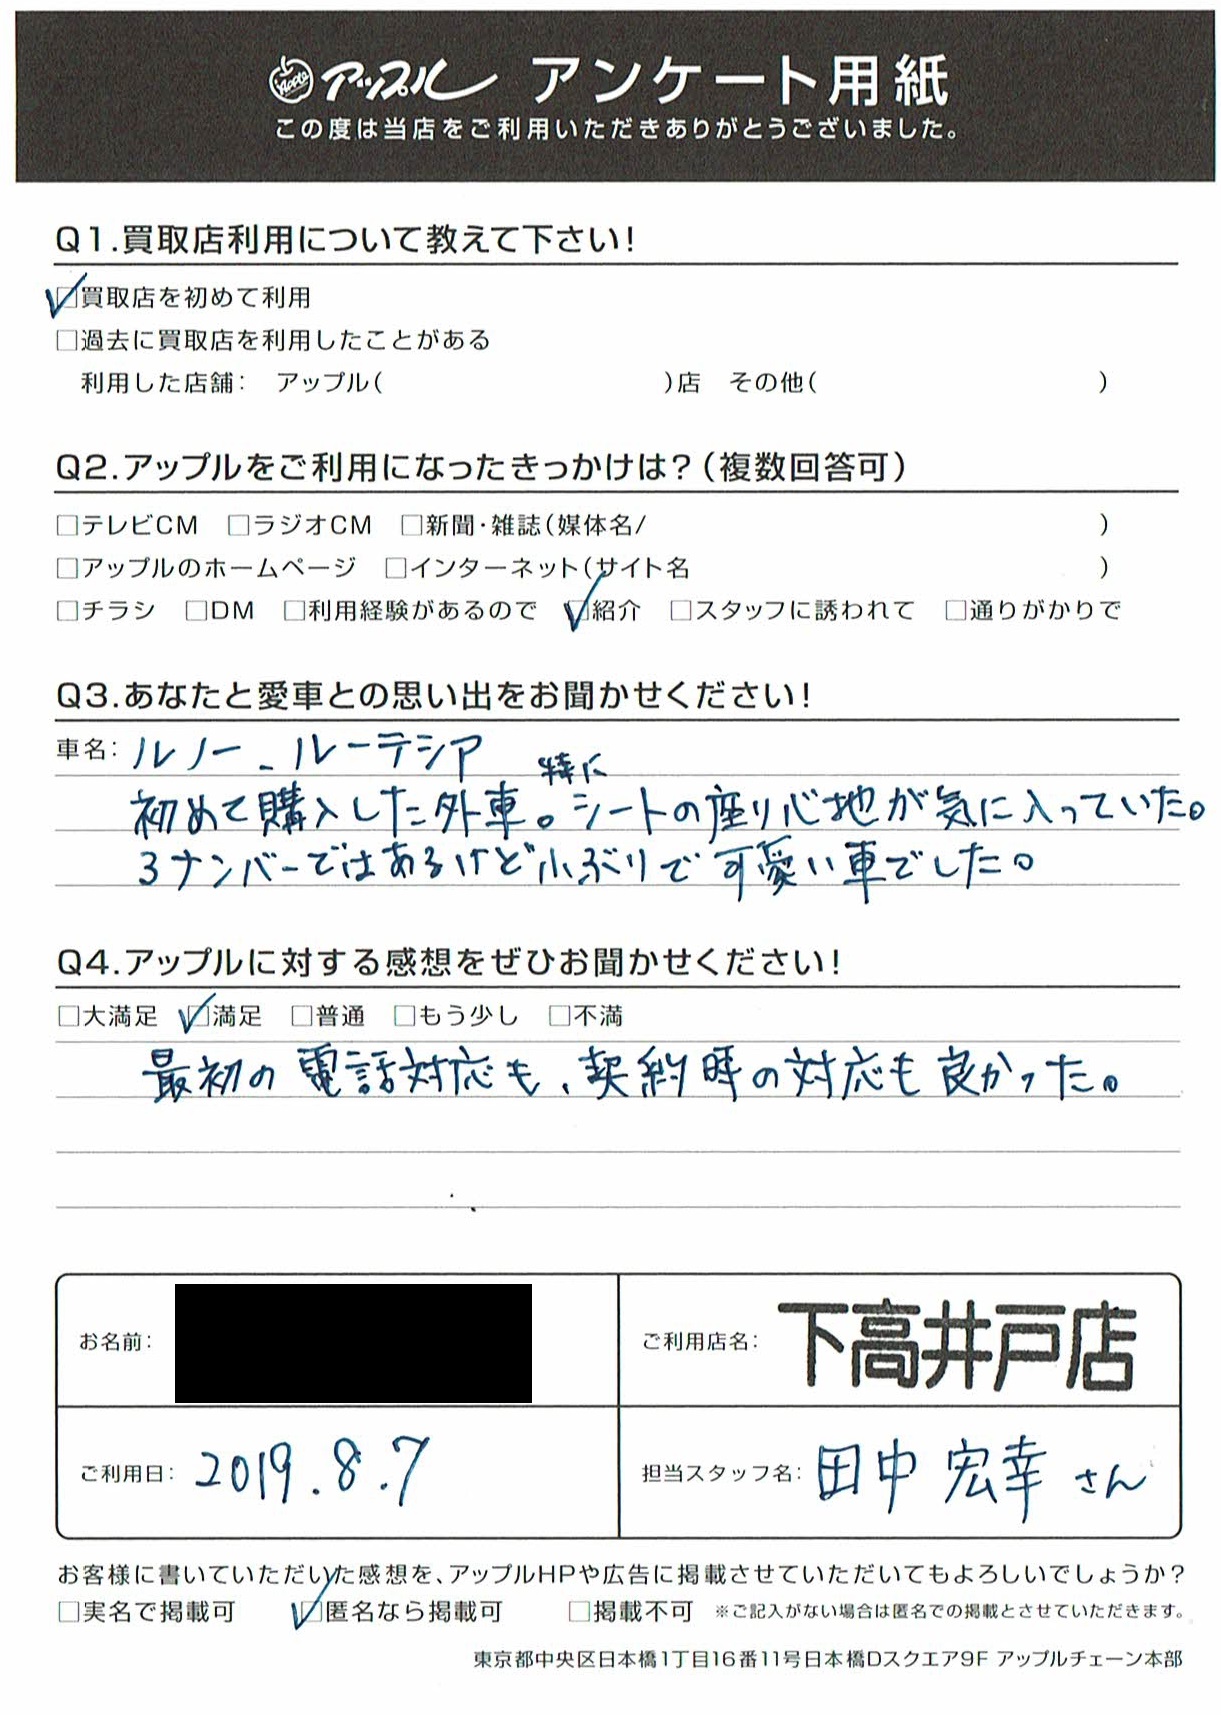 Apple アップル アンケート用紙
この度は当店をご利用いただきありがとうございました。
Q1.買取店利用について教えて下さい!
☑買取店を初めて利用
□過去に買取店を利用したことがある
利用した店舗: アップル( )店 その他( )
Q2.アップルをご利用になったきっかけは?(複数回答可)
□テレビCM □ラジオCM □新聞・雑誌(媒体名/ )
□アップルのホームページ □インターネット(サイト名 )
□チラシ □DM □利用経験があるので ☑紹介 □スタッフに誘われて □通りがかりで
Q3.あなたと愛車との思い出をお聞かせください!
車名: ルノー_ルーテシア
初めて購入した外車。特にシートの座り心地が気に入っていた。
3ナンバーではあるけど小ぶりで可愛い車でした。
Q4.アップルに対する感想をぜひお聞かせください!
□大満足 ☑満足 □普通 □もう少し □不満
最初の電話対応も、契約時の対応も良かった。
お名前:
ご利用店名: 下高井戸店
ご利用日: 2019.8.7
担当スタッフ名: 田中 宏幸 さん
お客様に書いていただいた感想を、アップルHPや広告に掲載させていただいてもよろしいでしょうか?
□実名で掲載可 ☑匿名なら掲載可 □掲載不可 ※ご記入がない場合は匿名での掲載とさせていただきます。
東京都中央区日本橋1丁目16番11号日本橋Dスクエア9F アップルチェーン本部